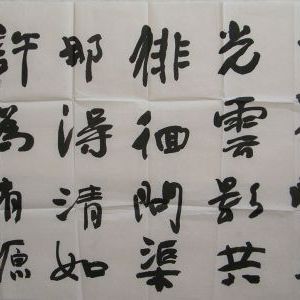 光雲影共
徘徊問渠
那得清如
許為有源